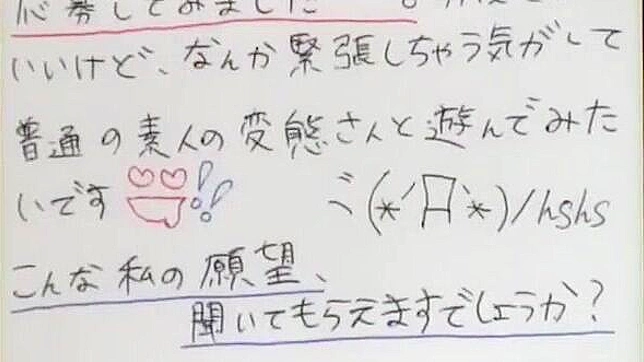 応募してみました
いいけど、なんか緊張しちゃう気がして
普通の素人の変態さんと遊んでみた
いです!! ミ(*´Д`*)/hshs
こんな私の願望、
聞いてもらえますでしょうか?